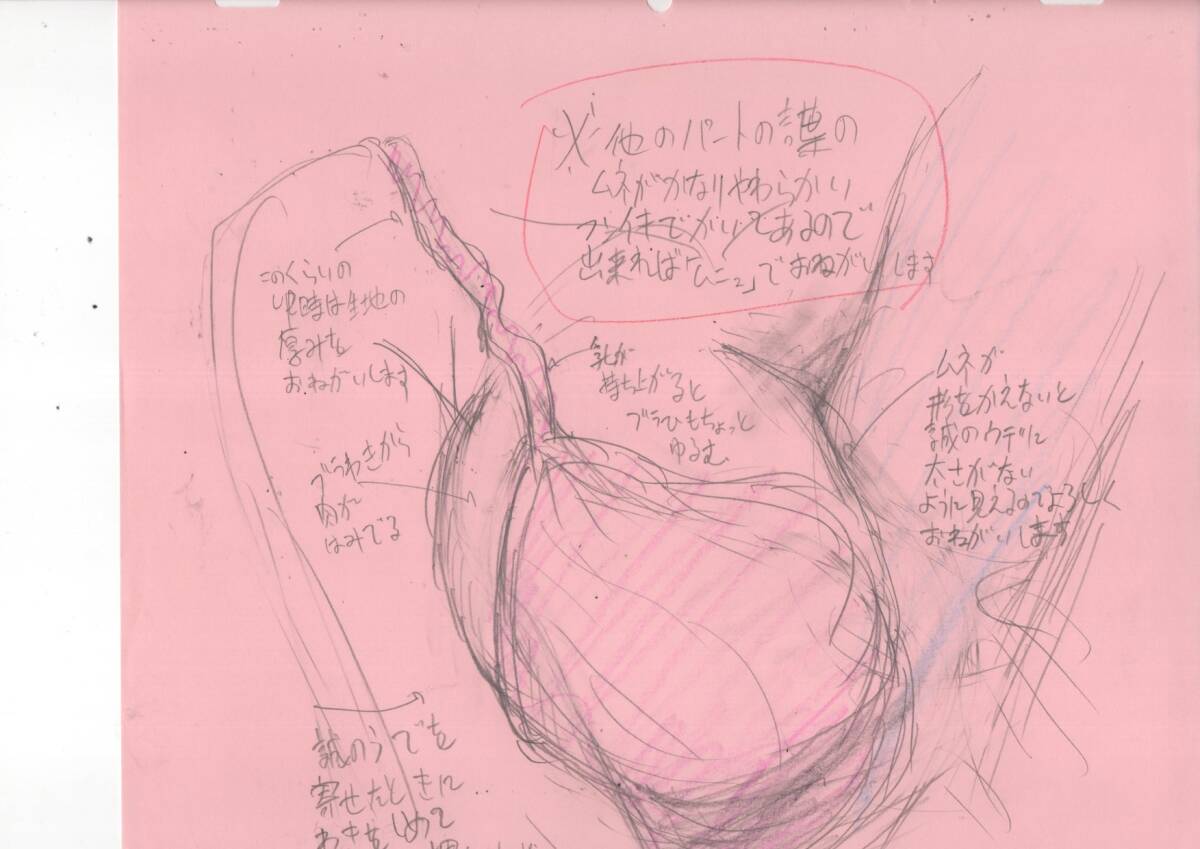 ※他のパートの誠の
ムネがかなりやわらかい
かいてあるので
出来れば「ムニュ」でおねがいします
このくらいの
時は生地の
厚みを
おねがいします
乳が
持ち上がると
ブラひもちょっと
ゆるむ
ムネが
形をかえないと
誠のウデに
太さがない
ように見えるのでよろしく
おねがいします
ブラわきから
肉が
はみでる
誠のうでを
寄せたときに
しめて